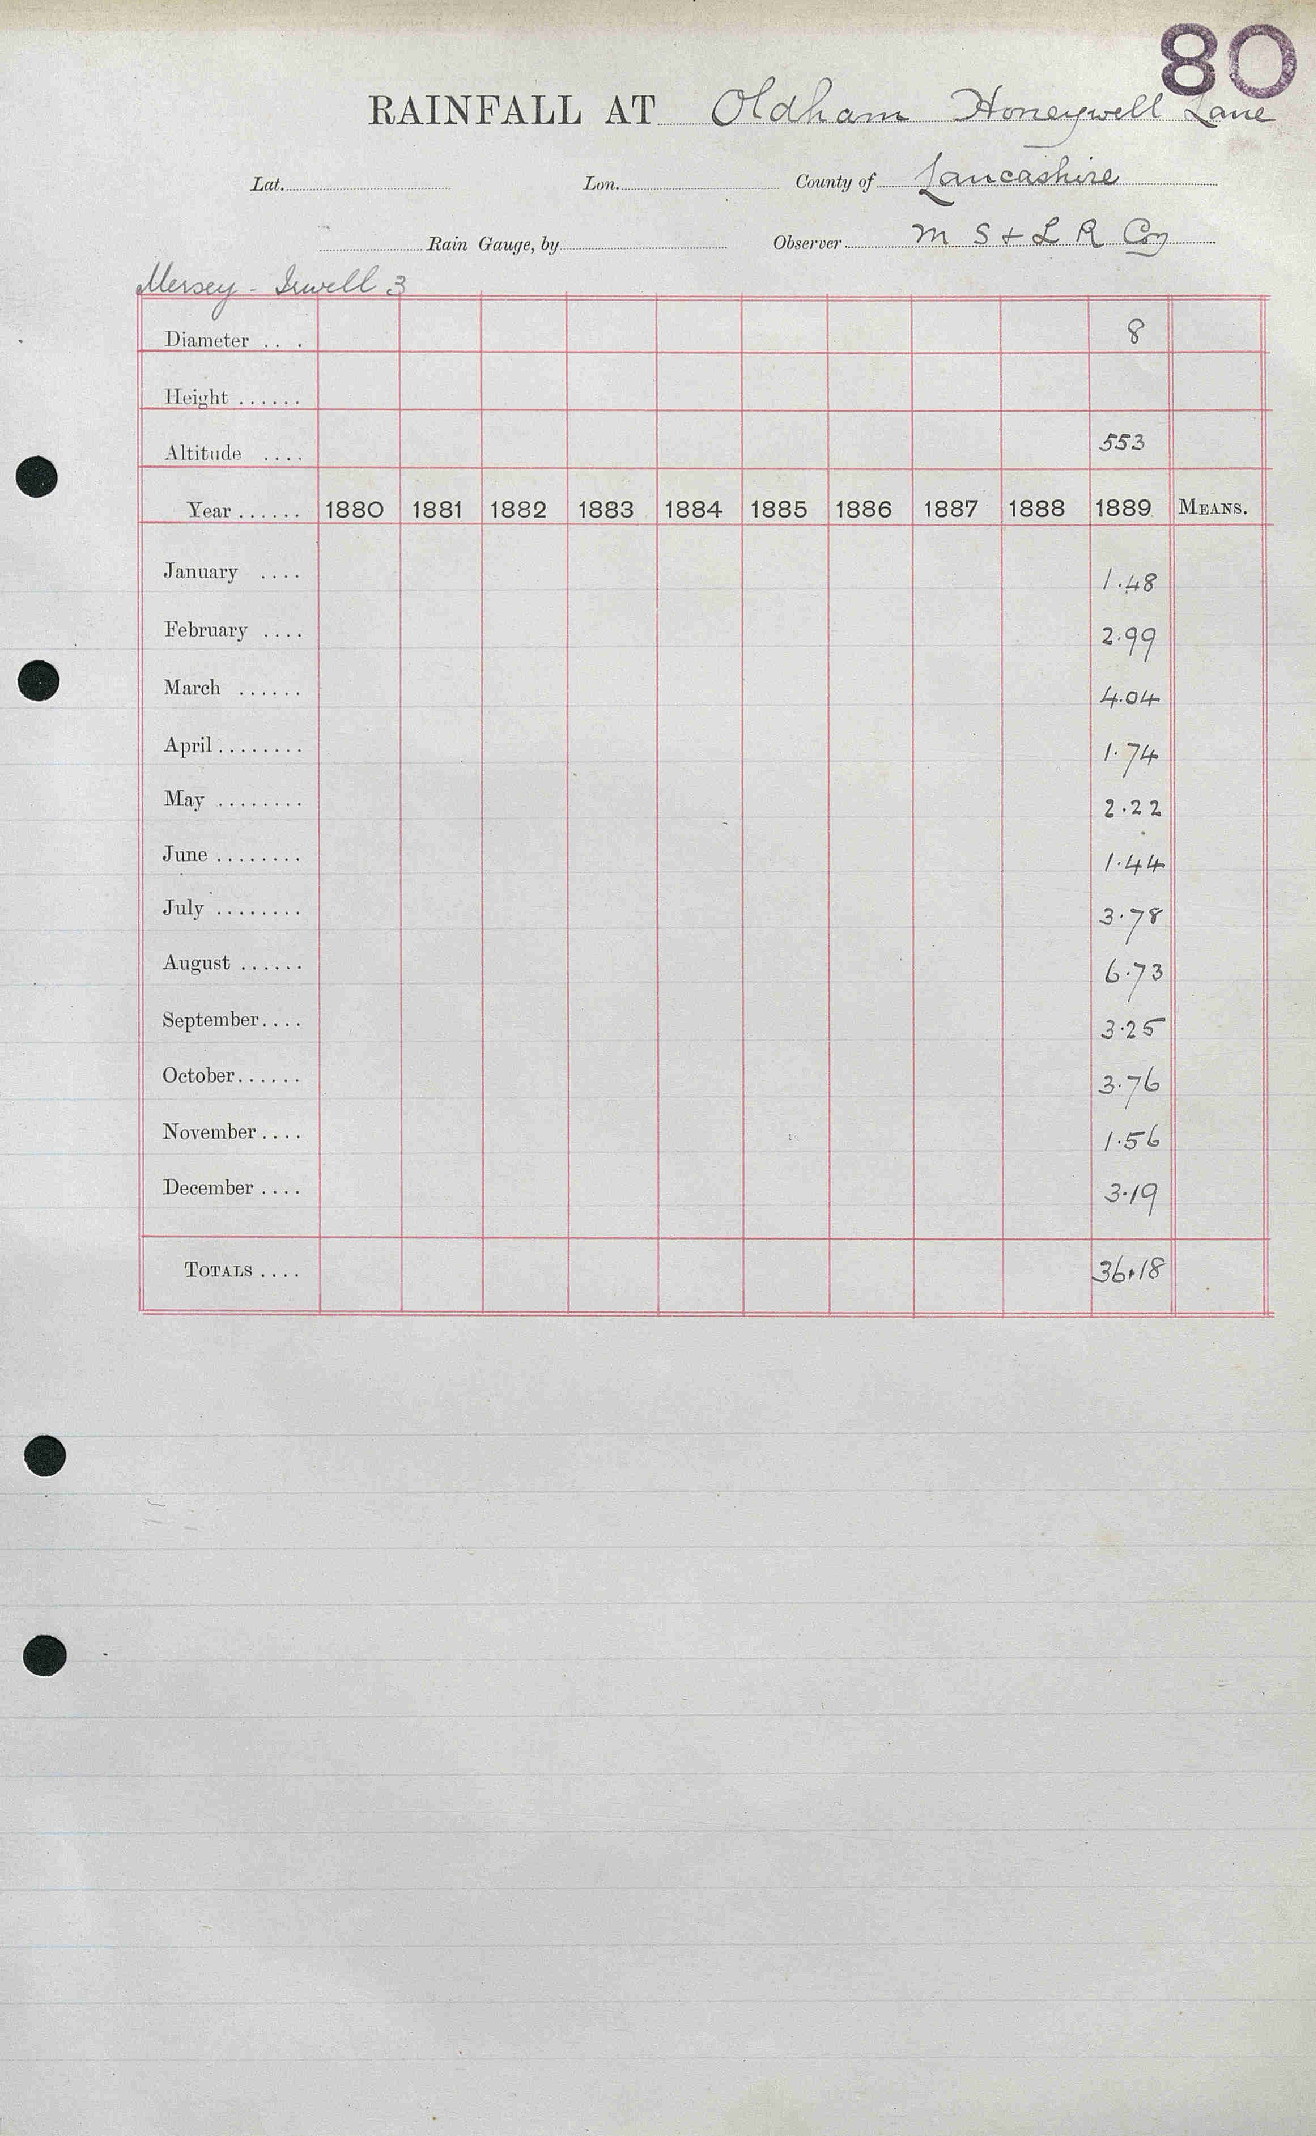 80
RAINFALL AT Oldham Honeywell Lane
Lat. Lon. County of Lancashire
Rain Gauge, by Observer M S & L R Coy
Mersey - Irwell 3
Diameter . . . 8
Height ......
Altitude .... 553
Year ...... 1880 1881 1882 1883 1884 1885 1886 1887 1888 1889 MEANS.
January .... 1.48
February .... 2.99
March ...... 4.04
April ........ 1.74
May ........ 2.22
June ........ 1.44
July ........ 3.78
August ...... 6.73
September .... 3.25
October ...... 3.76
November .... 1.56
December .... 3.19
TOTALS .... 36.18